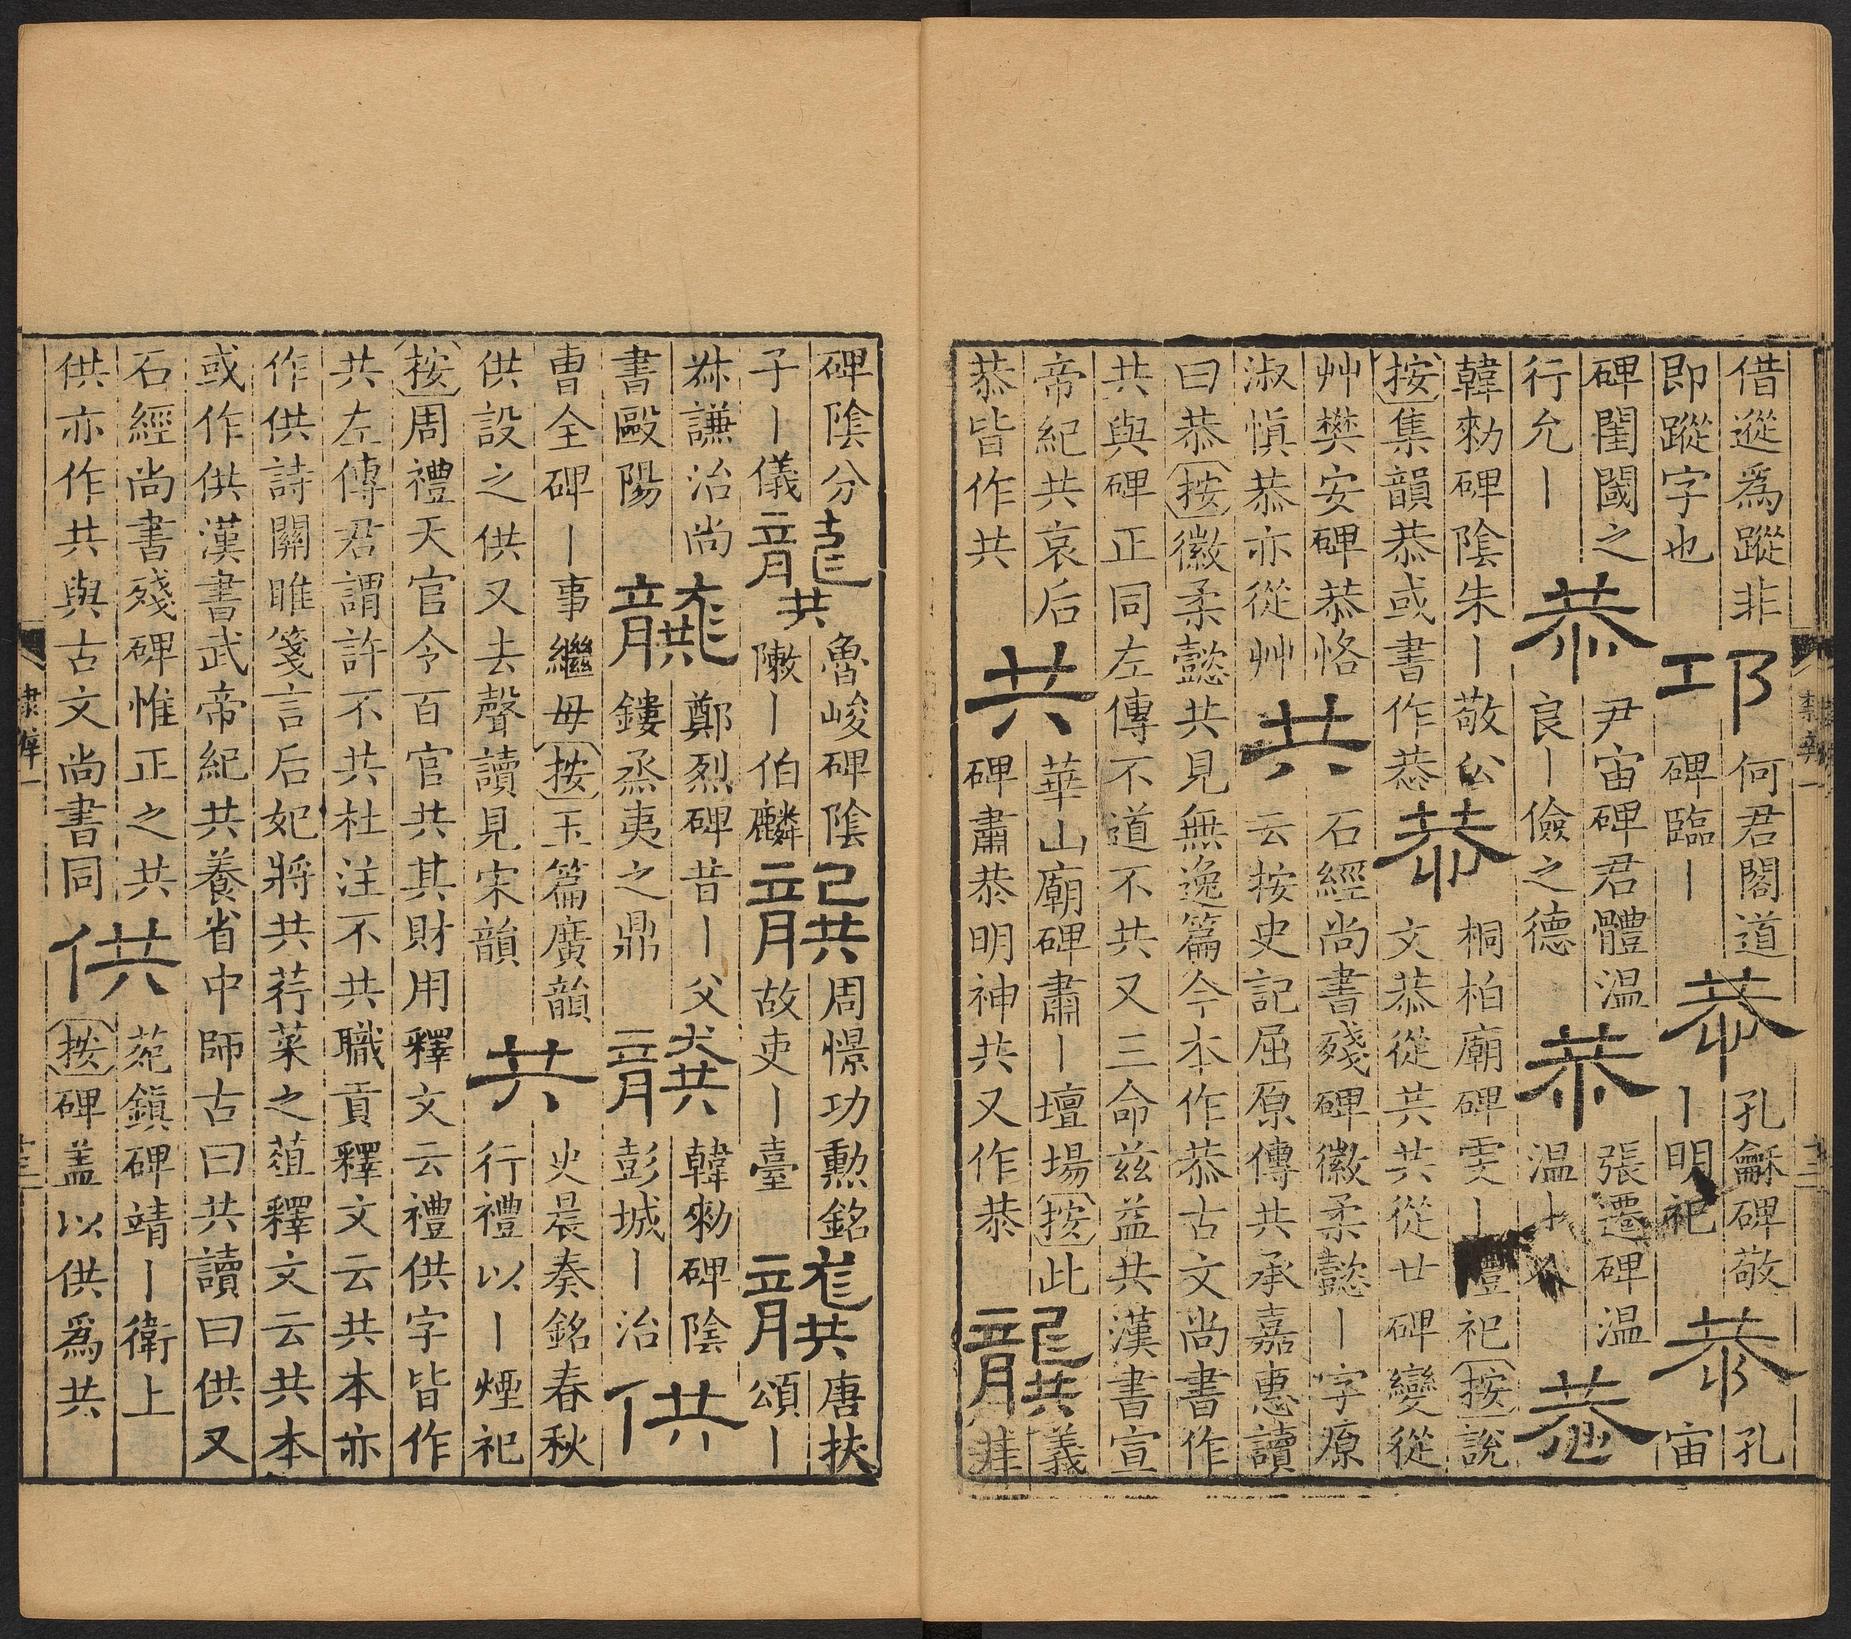 借遳爲蹤非
即蹤字也
邛
何君閣道
碑臨丨
恭
孔龢碑敬
丨明祀
恭
孔
宙
碑閨閾之
行允丨
恭
尹宙碑君體温
良丨儉之德
恭
張遷碑温
温
恭
韓勑碑陰朱丨敬公
按集韻恭或書作㳟
恭
桐柏廟碑雯丨禮祀按說
文恭從共共從廿碑變從
艸樊安碑恭恪
淑愼恭亦從艸
共
石經尚書殘碑徽柔懿丨字原
云按史記屈原傳共承嘉惠讀
曰恭按徽柔懿共見無逸篇今本作恭古文尚書作
共與碑正同左傳不道不共又三命兹益共漢書宣
帝紀共哀后
恭皆作共
共
華山廟碑肅丨壇場按此
碑肅恭明神共又作恭
龔
義
井
隸辨一
十三
碑陰分
子丨儀
龔
魯峻碑陰
敶丨伯麟
龔
周憬功勲銘
故吏丨臺
龔
唐扶
頌丨
秝謙治尚
書毆陽
龔
鄭烈碑昔丨父
鏤烝夷之鼎
龔
韓勑碑陰
彭城丨治
供
曹全碑丨事繼毋按玉篇廣韻
供設之供又去聲讀見宋韻
共
史晨奏銘春秋
行禮以丨煙祀
按周禮天官令百官共其財用釋文云禮供字皆作
共左傳君謂許不共杜注不共職貢釋文云共本亦
作供詩關雎箋言后妃將共荇菜之葅釋文云共本
或作供漢書武帝紀共養省中師古曰共讀曰供又
石經尚書殘碑惟正之共
供亦作共與古文尚書同
供
菀鎭碑靖丨衛上
按碑盖以供爲共
隸辨一
十三